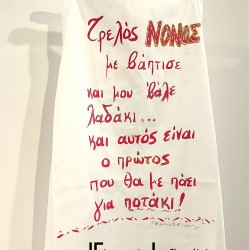 Τρελός ΝΟΝΟΣ
με βάπτισε
και μου 'βαλε
λαδάκι...
και αυτός είναι
ο πρώτος
που θα με πάει
για ποτάκι!